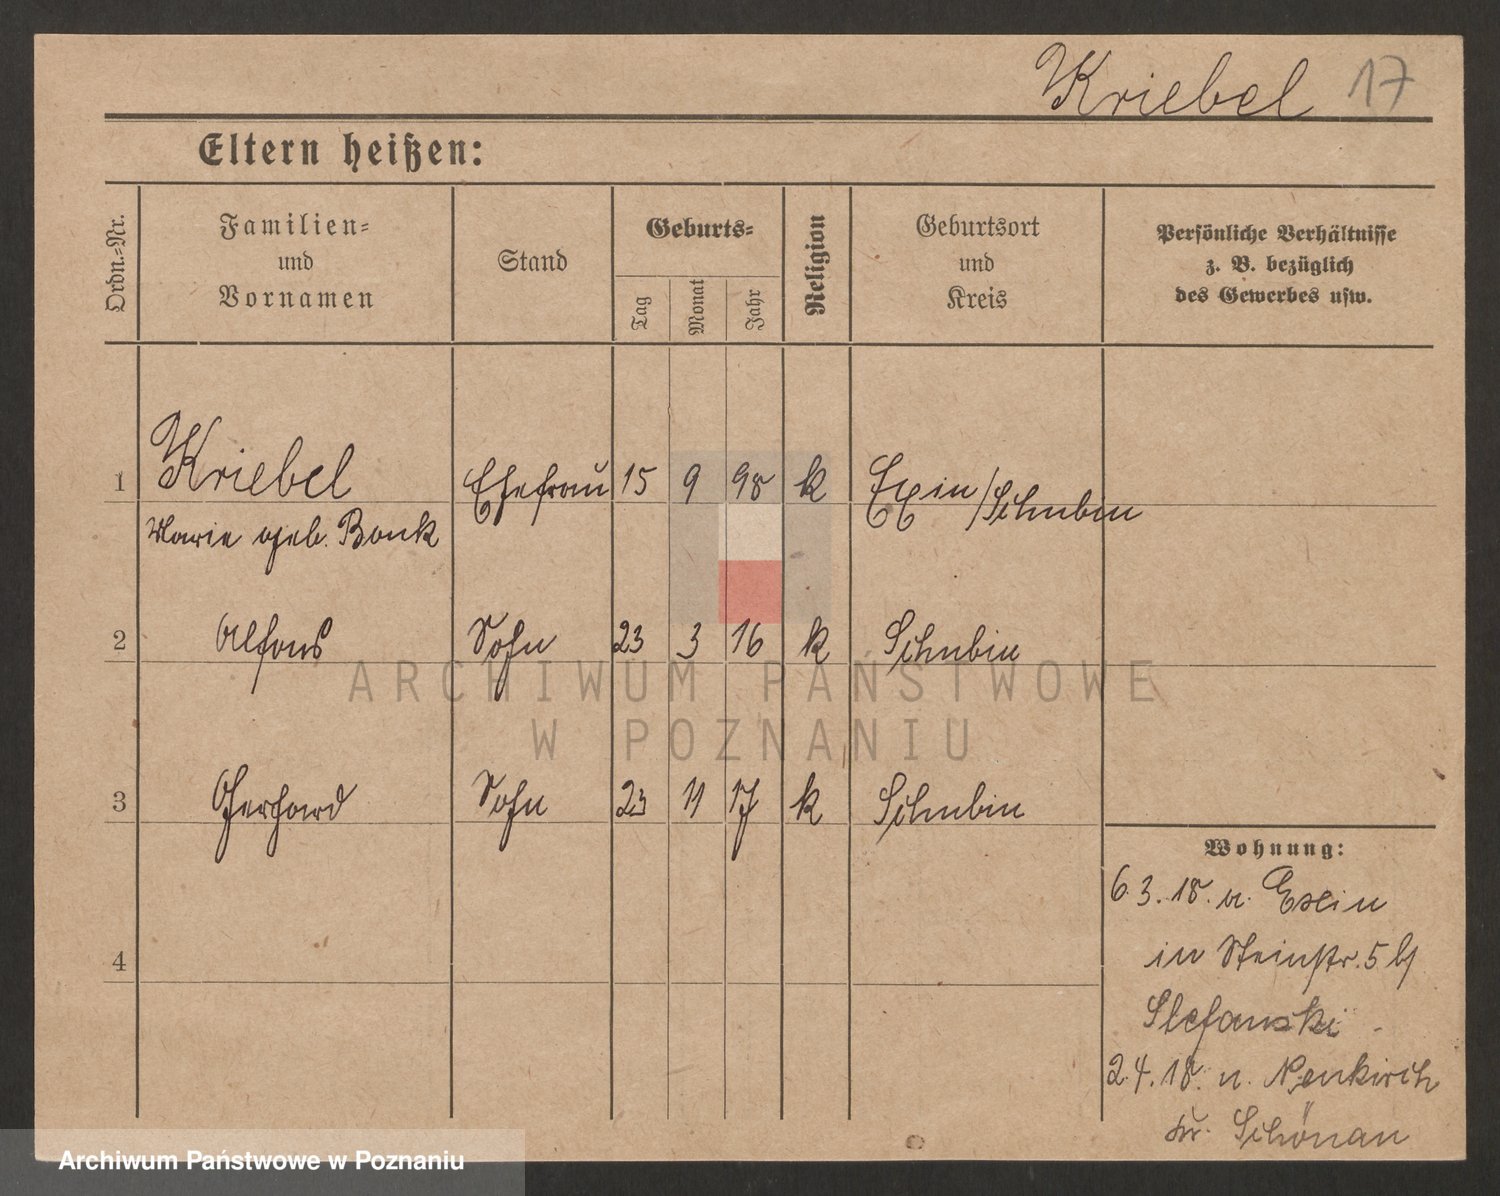 Kriebel 17
Eltern heißen:
Ordn.-Nr.
Familien-
und
Vornamen
Stand
Geburts-
Tag
Monat
Jahr
Religion
Geburtsort
und
Kreis
Persönliche Verhältnisse
z. B. bezüglich
des Gewerbes usw.
1 Kriebel Ehefrau 15 9 98 k Exin/Schubin
Marie geb. Bonk
2 Alfons Sohn 23 3 16 k Schubin
ARCHIWUM PAŃSTWOWE
W POZNANIU
3 Gerhard Sohn 23 11 17 k Schubin
4
Wohnung:
6.3.18. v. Exin
in Steinstr. 5 b/
Stefanski
2.4.18. n. Neukirch
Kr. Schönau
Archiwum Państwowe w Poznaniu